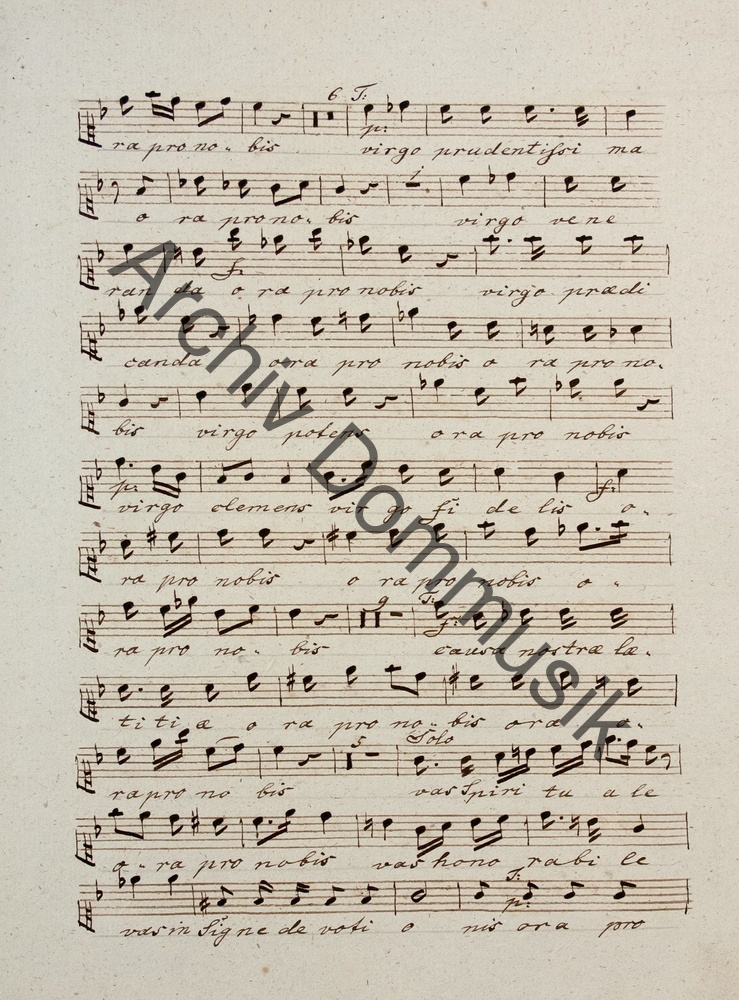 6 T:
p:
ra pro no - bis virgo prudentissi ma
1
o ra pro no - bis virgo vene
f:
randa o ra pro nobis virgo prædi
canda ora pro nobis o ra pro no -
bis virgo potens ora pro nobis
p: f:
virgo clemens virgo fi de lis o -
ra pro nobis o ra pro nobis o -
9 T:
f:
ra pro no - bis causa nostræ læ -
titiæ o ra pro no - bis ora o -
5 Solo
ra pro no bis vas Spiri tu a le
o - ra pro nobis vas hono rabi le
T:
p:
vas in Signe de voti o nis ora pro
Archiv Dommusik